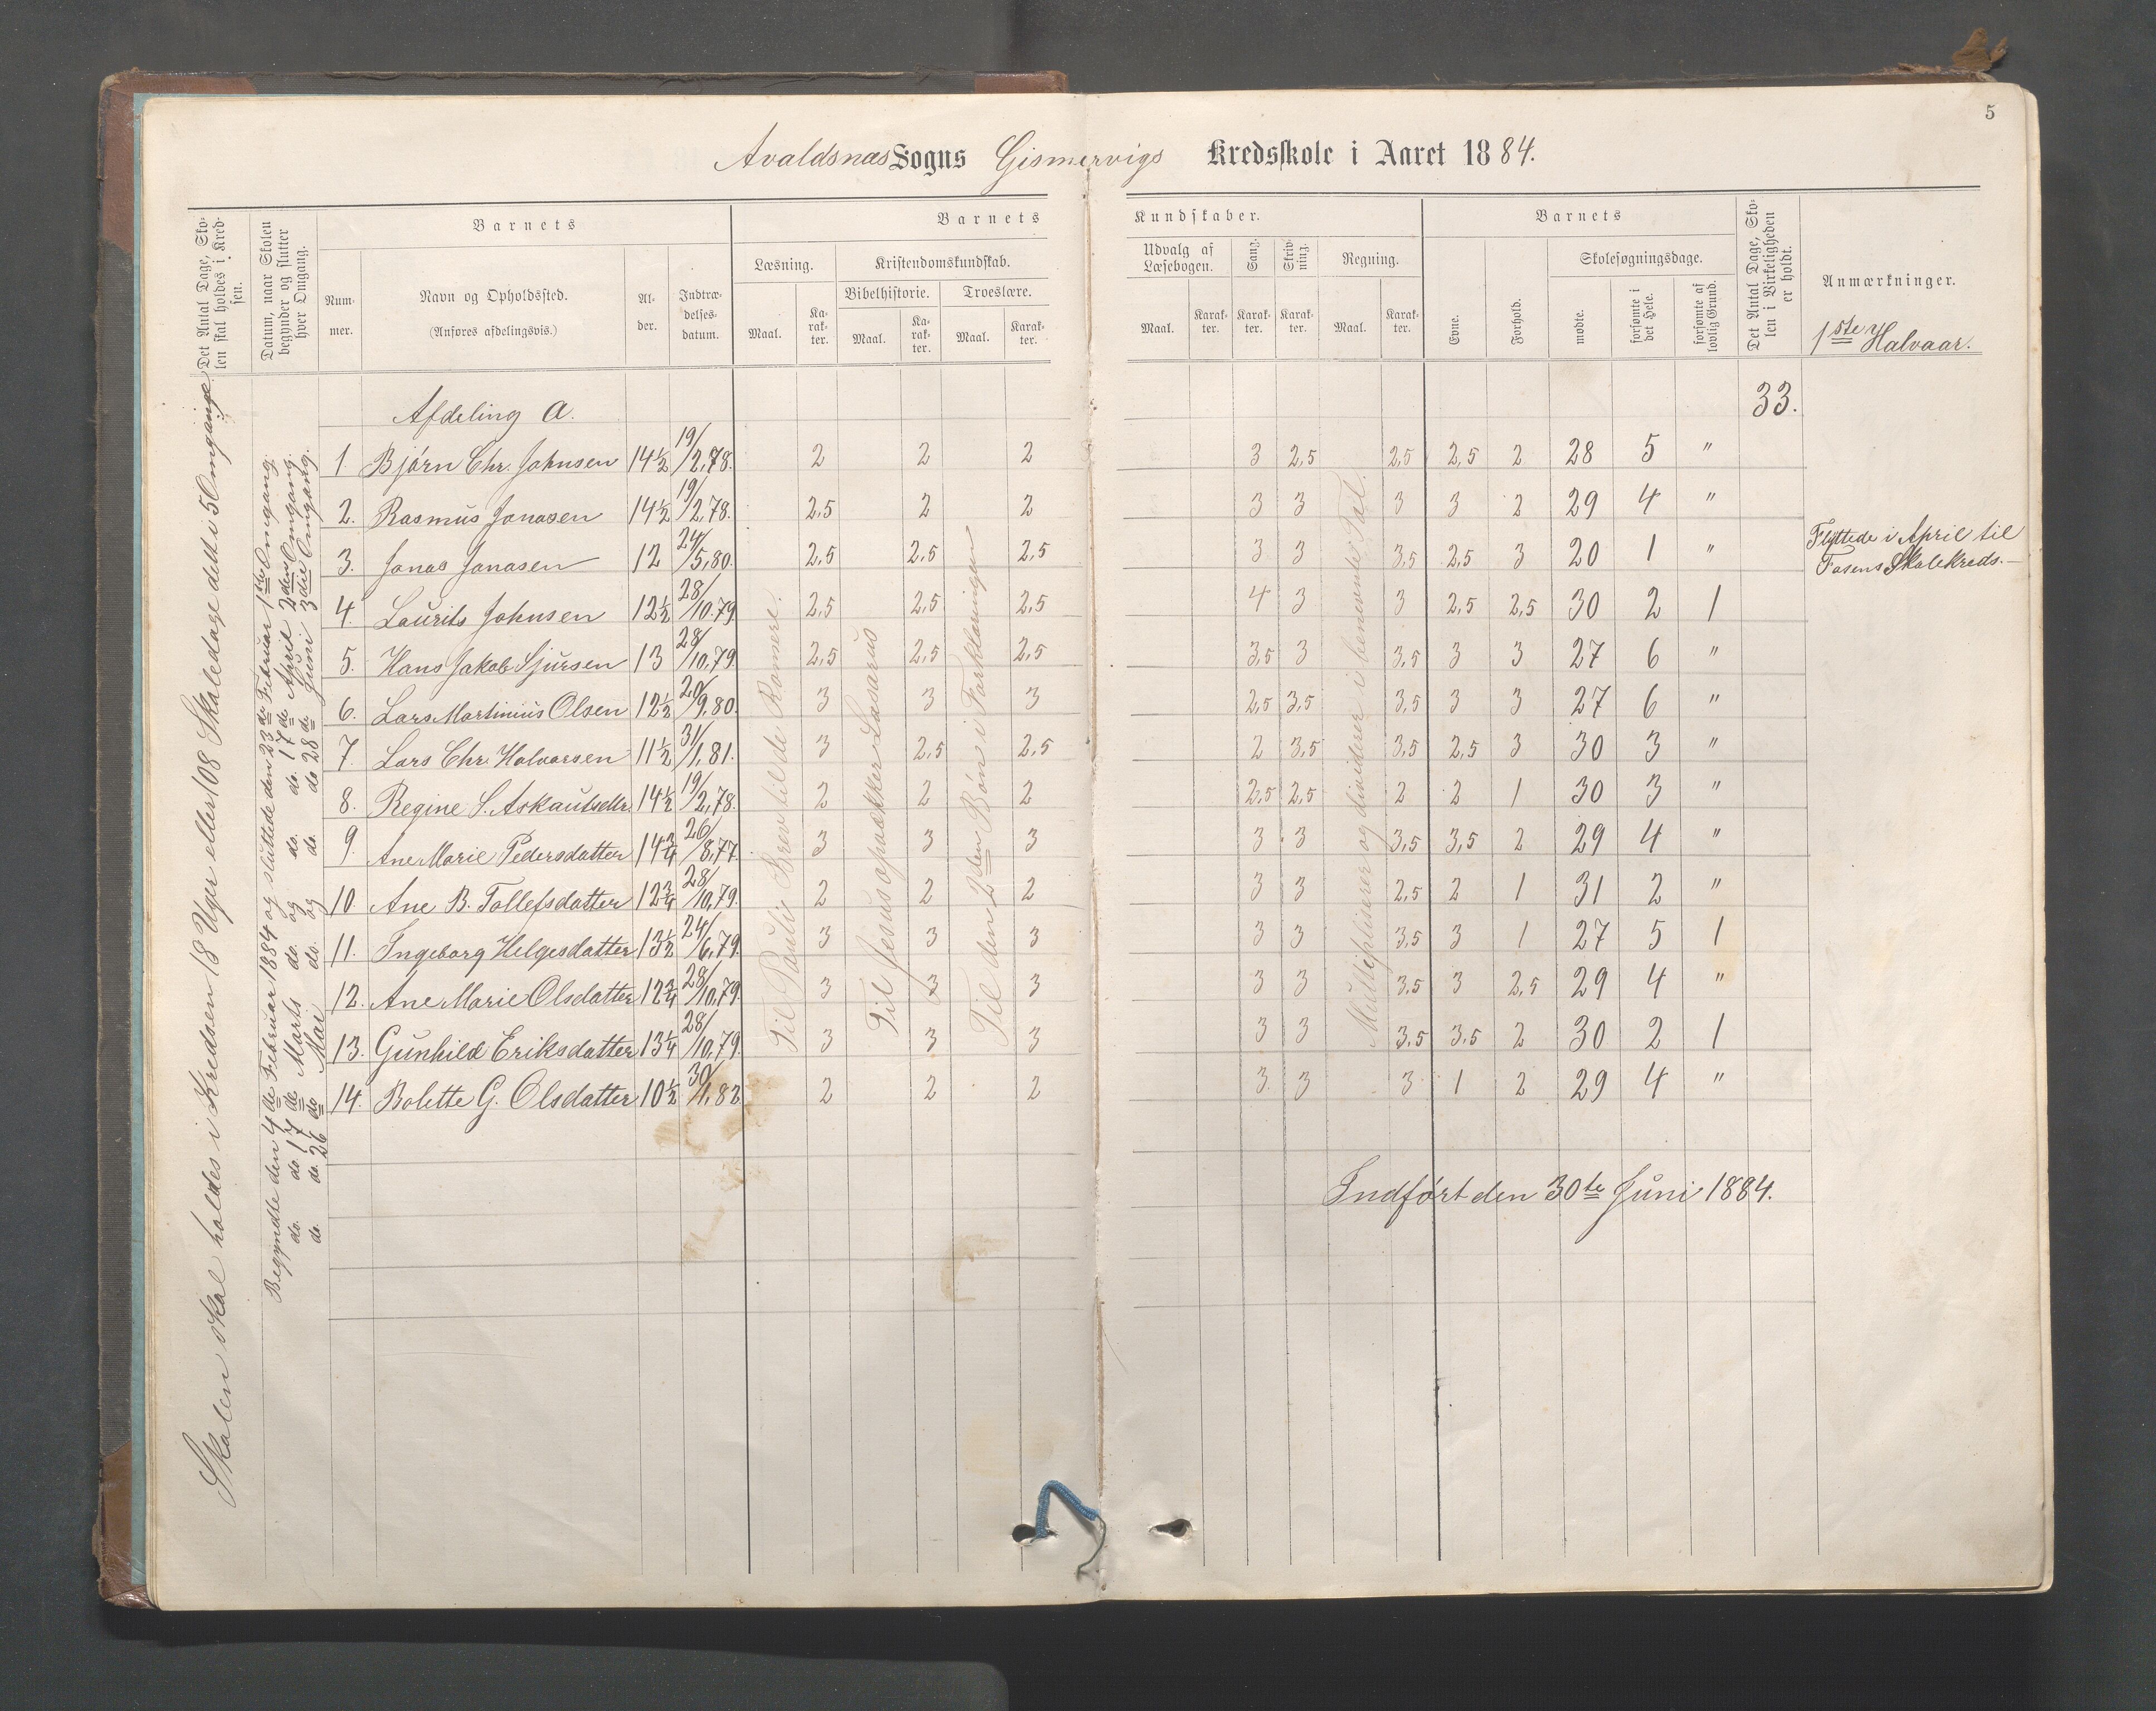 5
Avaldsnæs Sogns Gismervigs Kredsskole i Aaret 1884.
Det Antal Dage, Sko-
len skal holdes i Kred-
sen.
Datum, naar Skolen
begynder og slutter
hver Omgang.
Barnets
Num-
mer.
Navn og Opholdssted.
(Anføres afdelingsvis.)
Al-
der.
Indtræ-
delses-
datum.
Barnets
Læsning.
Maal.
Ka-
rak-
ter.
Kristendomskundskab.
Bibelhistorie.
Maal.
Ka-
rak-
ter.
Troeslære.
Maal.
Karak-
ter.
Kundskaber.
Udvalg af
Læsebogen.
Maal.
Karak-
ter.
Sang.
Karak-
ter.
Skriv-
ning.
Karak-
ter.
Regning.
Maal.
Karak-
ter.
Barnets
Evne.
Forhold.
Skolesøgningsdage.
mødte.
forsømte i
det Hele.
forsømte af
lovlig Grund.
Det Antal Dage, Sko-
len i Virkeligheden
er holdt.
Anmærkninger.
1ste Halvaar.
Skolen skal holdes i Kredsen 18 Uger eller 108 Skoledage delt i 5 Omgange
Begyndte den 4de Februar 1884 og sluttede den 23de Februar 1ste Omgang.
do. do. 17de Marts do. og do. do. 17de April 2den Omgang.
do. do. 26 do Mai do. og do. do 28de Juni 3die Omgang.
Afdeling A. 33.
1 Bjørn Chr. Johnsen 14½ 19/2,78. 2 2 2 3 2,5 2,5 2,5 2 28 5 "
2. Rasmus Jonasen 14½ 19/2,78. 2,5 2 2 3 3 3 3 2 29 4 "
3. Jonas Jonasen 12 24/5,80. 2,5 2,5 2,5 3 3 3,5 2,5 3 20 1 " Flyttede i April til
Fosens Skolekreds.—
4. Laurits Johnsen 12½ 28/10.79. 2,5 2,5 2,5 4 3 3 2,5 2,5 30 2 1
5. Hans Jakob Sjursen 13 28/10,79. 2,5 2,5 2,5 3,5 3 3,5 3 3 27 6 "
6. Lars Martinius Olsen 12½ 20/9,80. 3 3 3 2,5 3,5 3,5 3 3 27 6 "
7. Lars Chr. Halvorsen 11½ 31/1,81. 3 2,5 2,5 2 3,5 3,5 2,5 3 30 3 "
8. Regine S. Askautsdtr. 14½ 19/2,78. 2 2 2 2,5 2,5 2 2 1 30 3 "
9. Ane Marie Pedersdatter 14¾ 26/8,77. 3 3 3 3 3 3,5 3,5 2 29 4 "
10. Ane B. Tollefsdatter 12¾ 28/10,79. 2 2 2 3 3 2,5 2 1 31 2 "
11. Ingeborg Helgesdatter 13½ 24/6,79. 3 3 3 3 3 3,5 3 1 27 5 1
12. Ane Marie Olsdatter 12¾ 28/10,79. 3 3 3 3 3 3,5 3 2,5 29 4 "
13. Gunhild Eriksdatter 13¼ 28/10,79. 3 3 3 3 3 3,5 3,5 2 30 2 1
14. Bolette G. Olsdatter 10½ 30/1,82 2 2 2 3 3 3 1 2 29 4 "
Til Pauli Brev til de Romere.
Til Jesus opvækker Lasarus
Til den 2den Bøn i Forklaringen
Multipliserer og dividerer i benevnte Tal.
Indført den 30te Juni 1884.